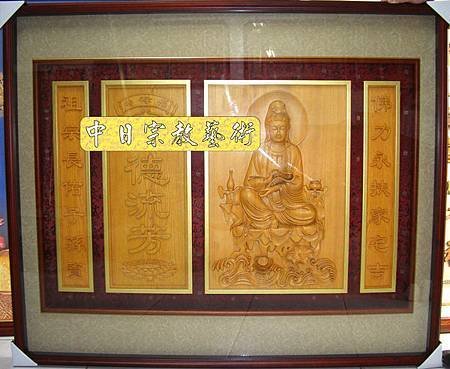 佛力永扶家宅吉
中日宗教藝術
德流芳
祖宗長佑子孫賢